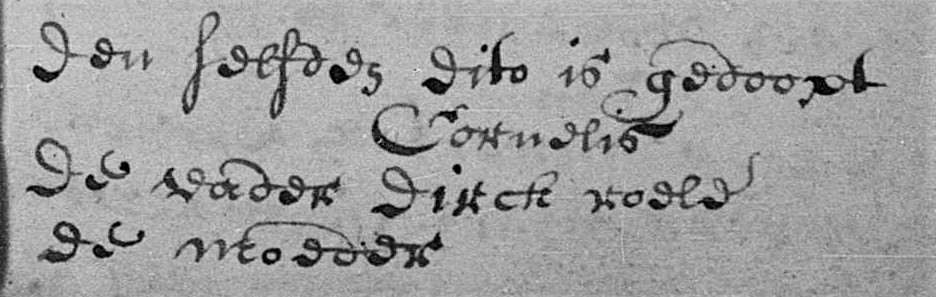 Den selfden dito is gedoopt
Cornelis
De vader Dirck roele
de Moeder